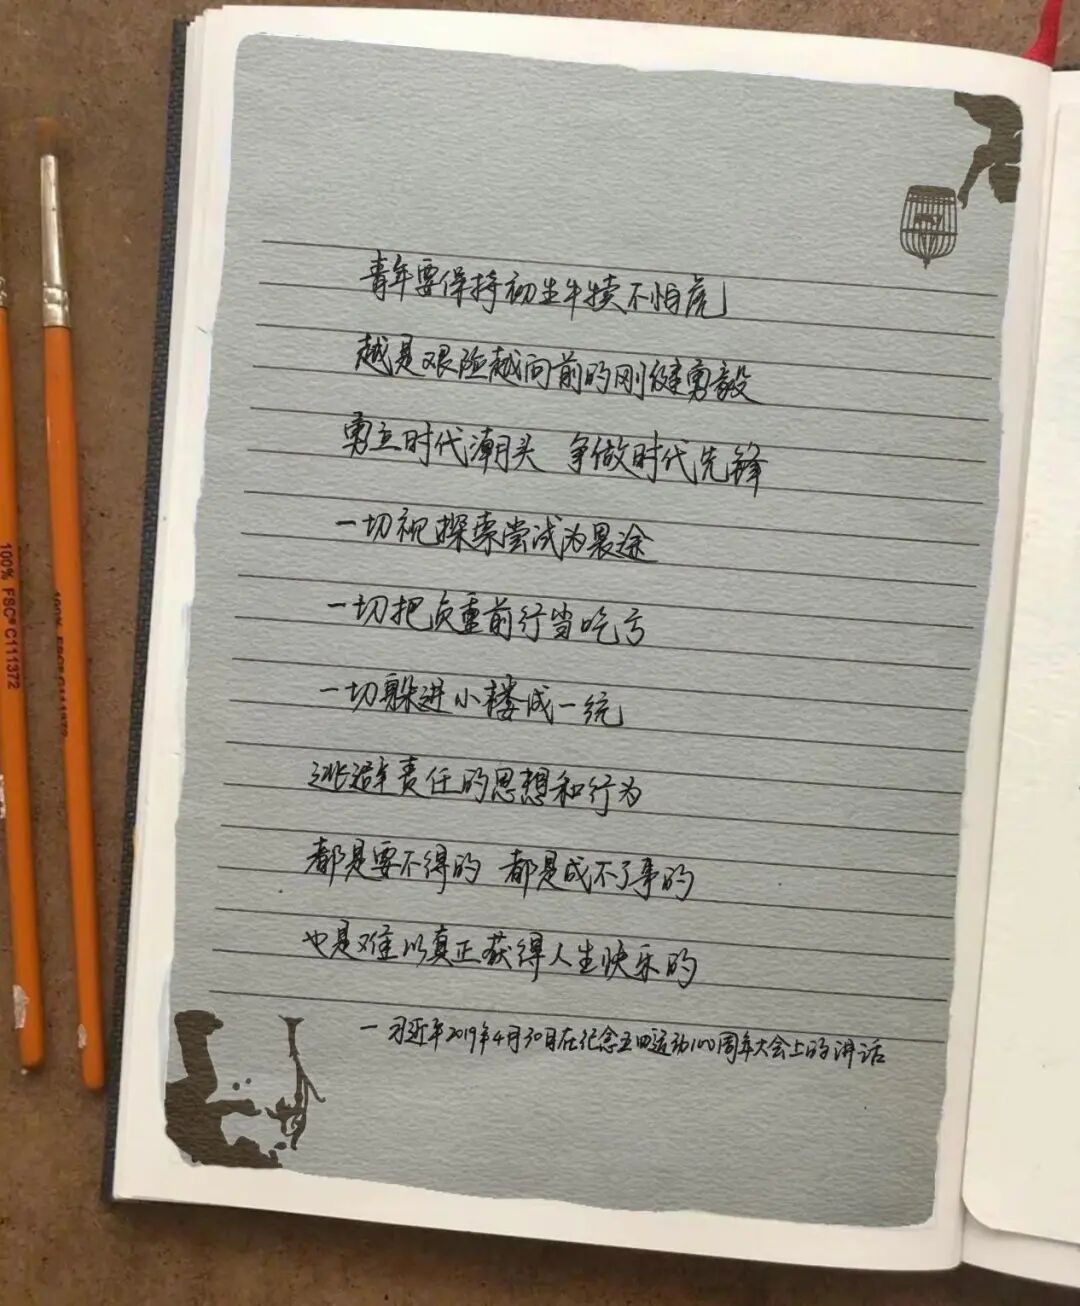 青年要保持初生牛犊不怕虎
越是艰险越向前的刚健勇毅
勇立时代潮头 争做时代先锋
一切视探索尝试为畏途
一切把负重前行当吃亏
一切躲进小楼成一统
逃避责任的思想和行为
都是要不得的 都是成不了事的
也是难以真正获得人生快乐的
一习近平2019年4月30日在纪念五四运动100周年大会上的讲话
100% FSC® C111372
100% FSC® C111372